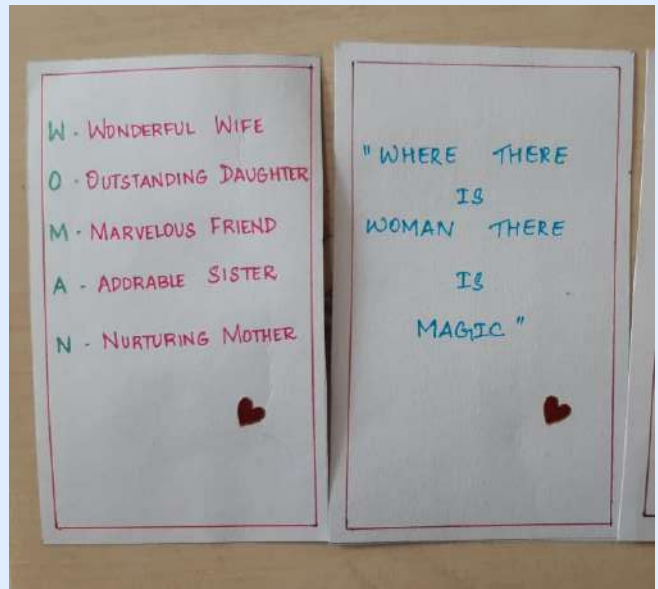 W - WONDERFUL WIFE
O - OUTSTANDING DAUGHTER
M - MARVELOUS FRIEND
A - ADORABLE SISTER
N - NURTURING MOTHER
"WHERE THERE
IS
WOMAN THERE
IS
MAGIC"